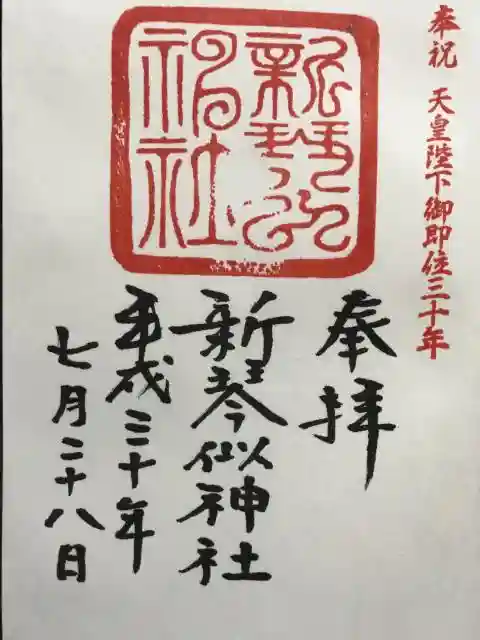 奉祝 天皇陛下御即位三十年
奉拝
新琴似神社
新琴似神社
平成三十年
七月二十八日